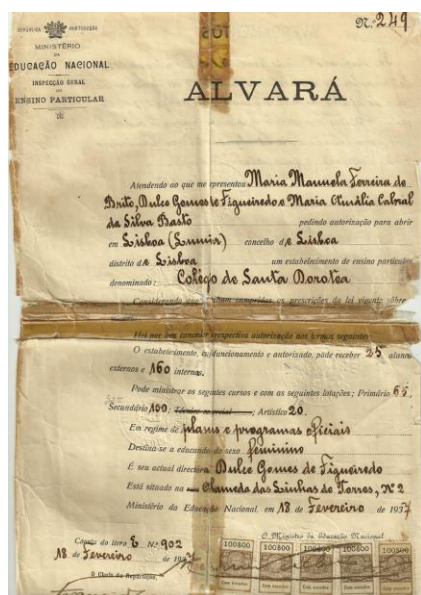 REPÚBLICA PORTUGUESA
Nº 249
MINISTÉRIO
DA
EDUCAÇÃO NACIONAL
INSPECÇÃO GERAL
DO
ENSINO PARTICULAR
ALVARÁ
Atendendo ao que me representou Maria Manuela Ferreira de
Brito, Dulce Gomes de Figueiredo e Maria Amália Cabral
da Silva Basto pedindo autorização para abrir
em Lisboa (Lumiar) concelho de Lisboa
distrito de Lisboa um estabelecimento de ensino particular
denominado: Colégio de Santa Dorotea
Considerando que foram cumpridas as prescrições da lei vigente sôbre
Hei por bem conceder a respectiva autorização nos termos seguintes:
O estabelecimento, cujo funcionamento é autorizado, pode receber 25 alunas
externos e 160 internas.
Pode ministrar os seguintes cursos e com as seguintes lotações; Primário 65,
Secundário 100; Artístico 20.
Em regime de planos e programas oficiais
Destina-se a educandos do sexo feminino
É seu actual directora Dulce Gomes de Figueiredo
Está situado na Alameda das Linhas de Torres, Nº 2
Ministério da Educação Nacional, em 18 de Fevereiro de 1937
O Ministro da Educação Nacional
Consta do livro E Nº 902
18 de Fevereiro de 1937
O Chefe da Repartição,
100$00 100$00 100$00 100$00 100$00
Cem escudos Cem escudos Cem escudos Cem escudos Cem escudos